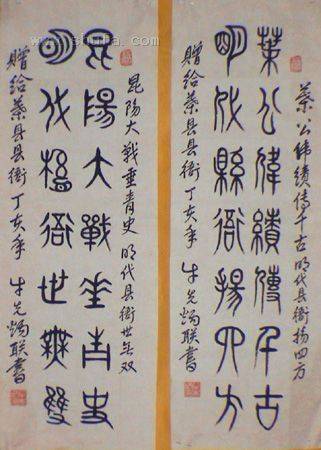 葉公伟绩传千古 明代县衙扬四方
葉公偉績傳千古
明代縣衙揚四方
赠给葉县县衙 丁亥年 牛 联書
昆阳大战垂青史 明代县衙世无双
昆陽大戰垂青史
明代縣衙世無雙
赠给葉县县衙 丁亥年 牛 联書